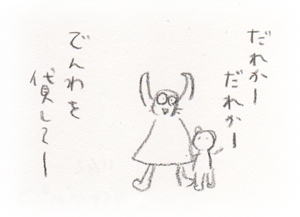 だれかー
だれかー
でんわを
貸してー